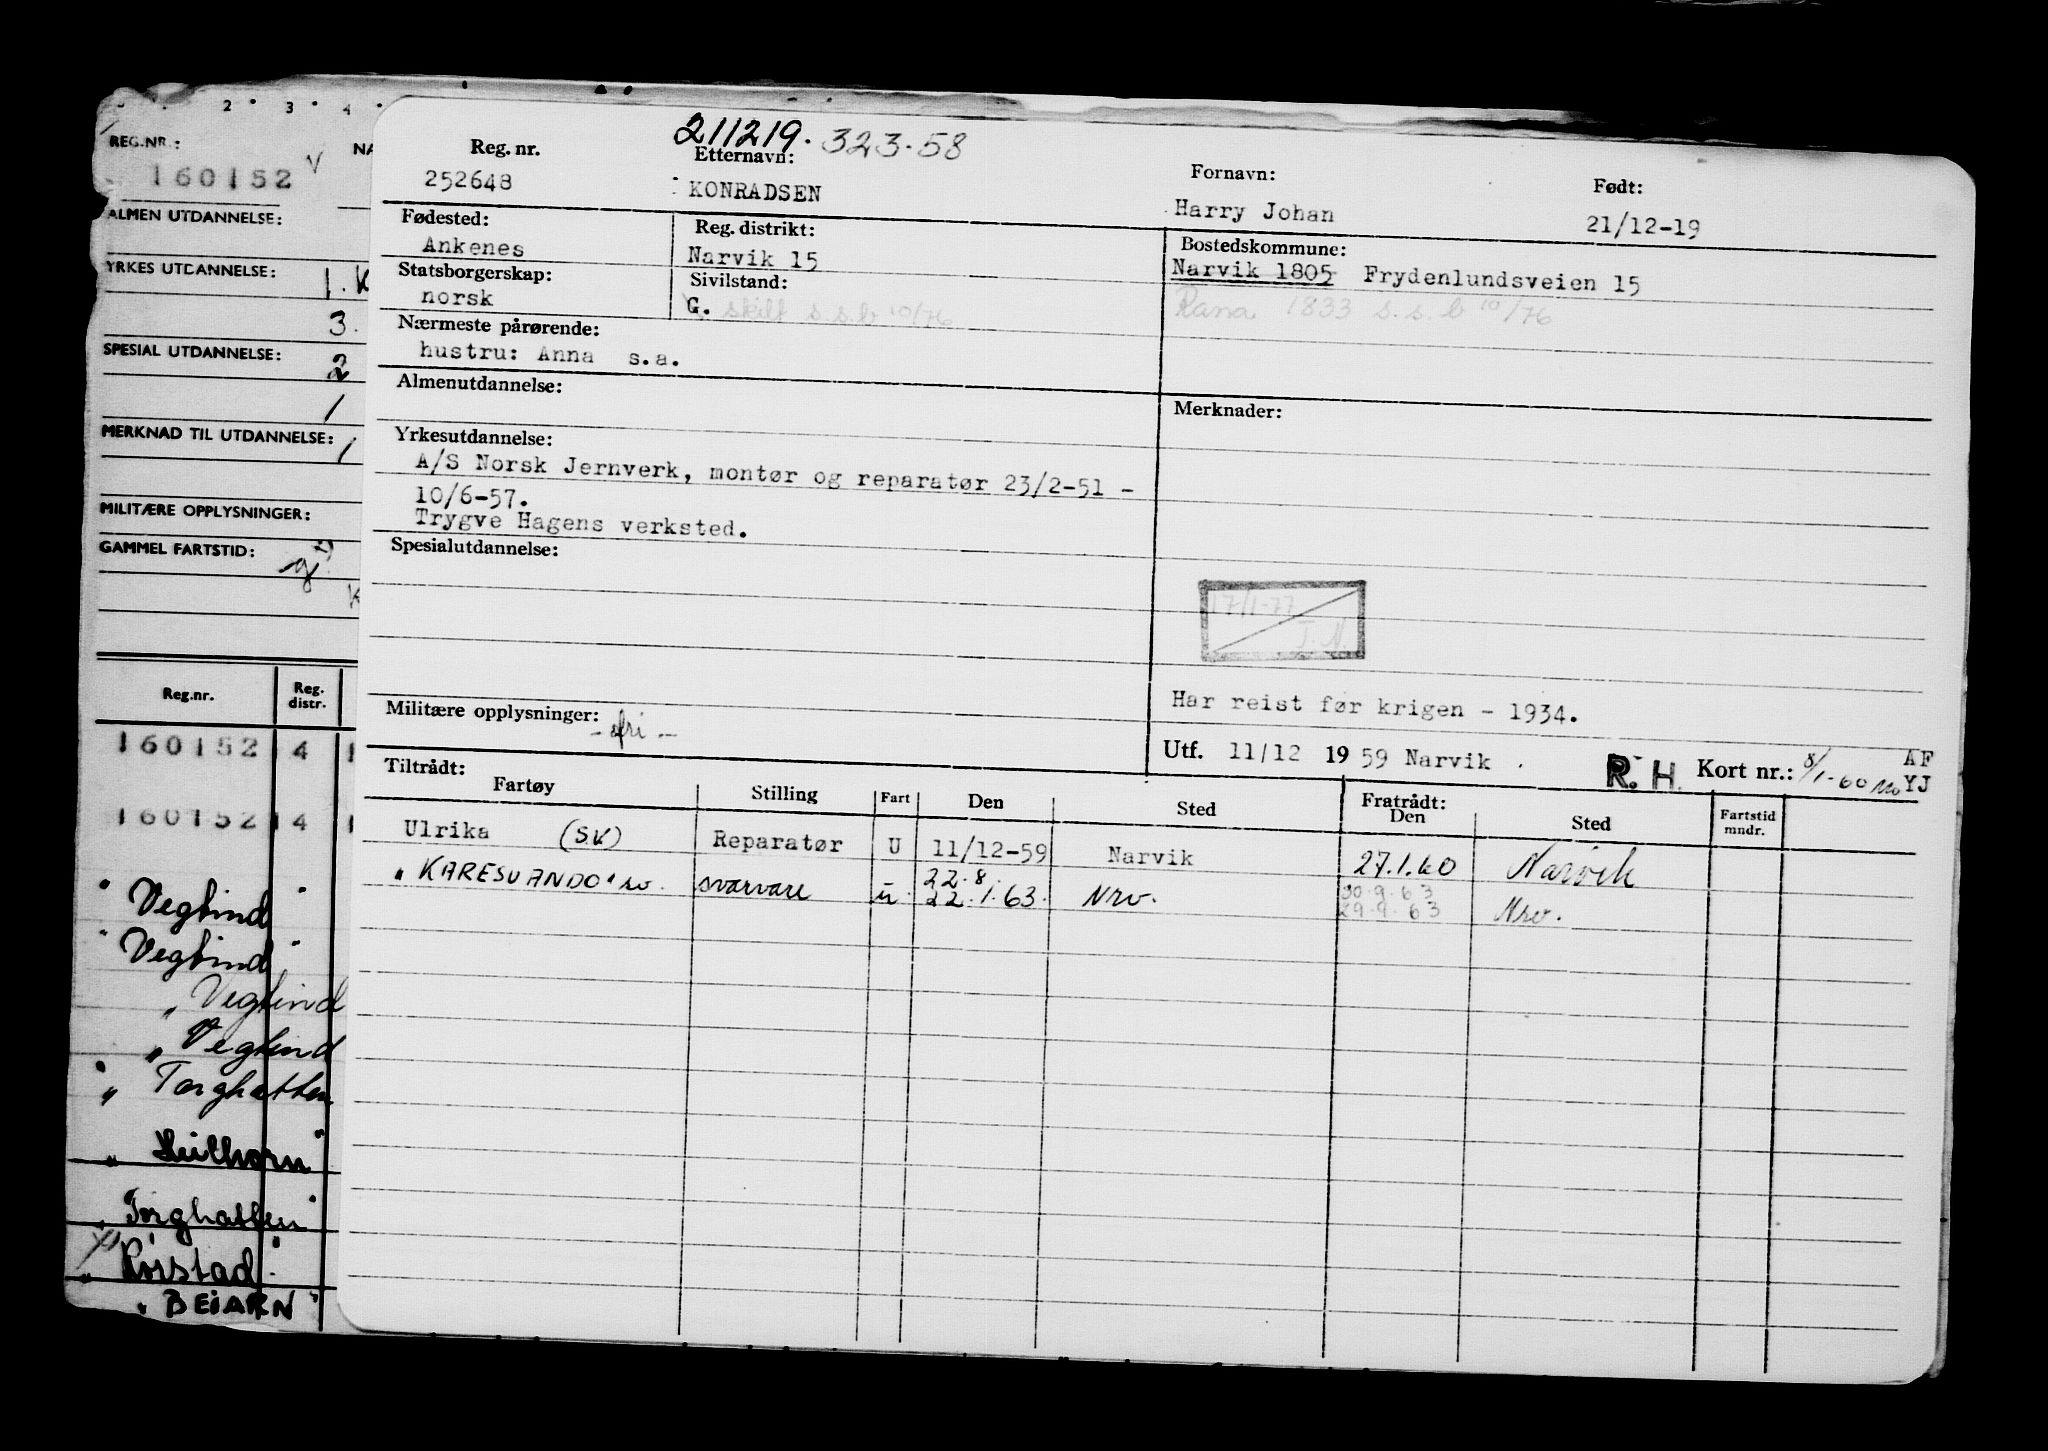 2 3 4
REG.NR.:
160152
ALMEN UTDANNELSE:
YRKES UTDANNELSE:
1. K
3.
SPESIAL UTDANNELSE:
2
1
MERKNAD TIL UTDANNELSE:
1
MILITÆRE OPPLYSNINGER:
GAMMEL FARTSTID:
Reg.nr. Reg. distr.
160152 4 1
160152 4 1
"Vegtind"
"Vegtind"
"Vegtind
"Vegtind
"Torghatten
"Heilhorn"
"Torghatten"
"Rørstad"
"BEIARN"
211219. 323.58
Reg. nr. Etternavn: Fornavn: Født:
252648 KONRADSEN Harry Johan 21/12-19
Fødested: Reg. distrikt: Bostedskommune:
Ankenes Narvik 15 Narvik 1805 Frydenlundsveien 15
Statsborgerskap: Sivilstand:
norsk G. skilt s.s.b 10/76 Rana 1833 s.s.b 10/76
Nærmeste pårørende:
hustru: Anna s.a.
Almenutdannelse: Merknader:
Yrkesutdannelse:
A/S Norsk Jernverk, montør og reparatør 23/2-51 -
10/6-57.
Trygve Hagens verksted.
Spesialutdannelse:
17/1-77
J.N.
Har reist før krigen - 1934.
Militære opplysninger: - fri -
Utf. 11/12 1959 Narvik . R.H. Kort nr.: 8/1-60 AF
YJ
Tiltrådt: Fratrådt:
Fartøy Stilling Fart Den Sted Den Sted Fartstid mndr.
Ulrika (SV) Reparatør U 11/12-59 Narvik 27.1.60 Narvik
22.8. 30.9.63
"KARESUANDO" sv. svarvare u 22.1.63. Nrv. 29.9.63 Nrv.